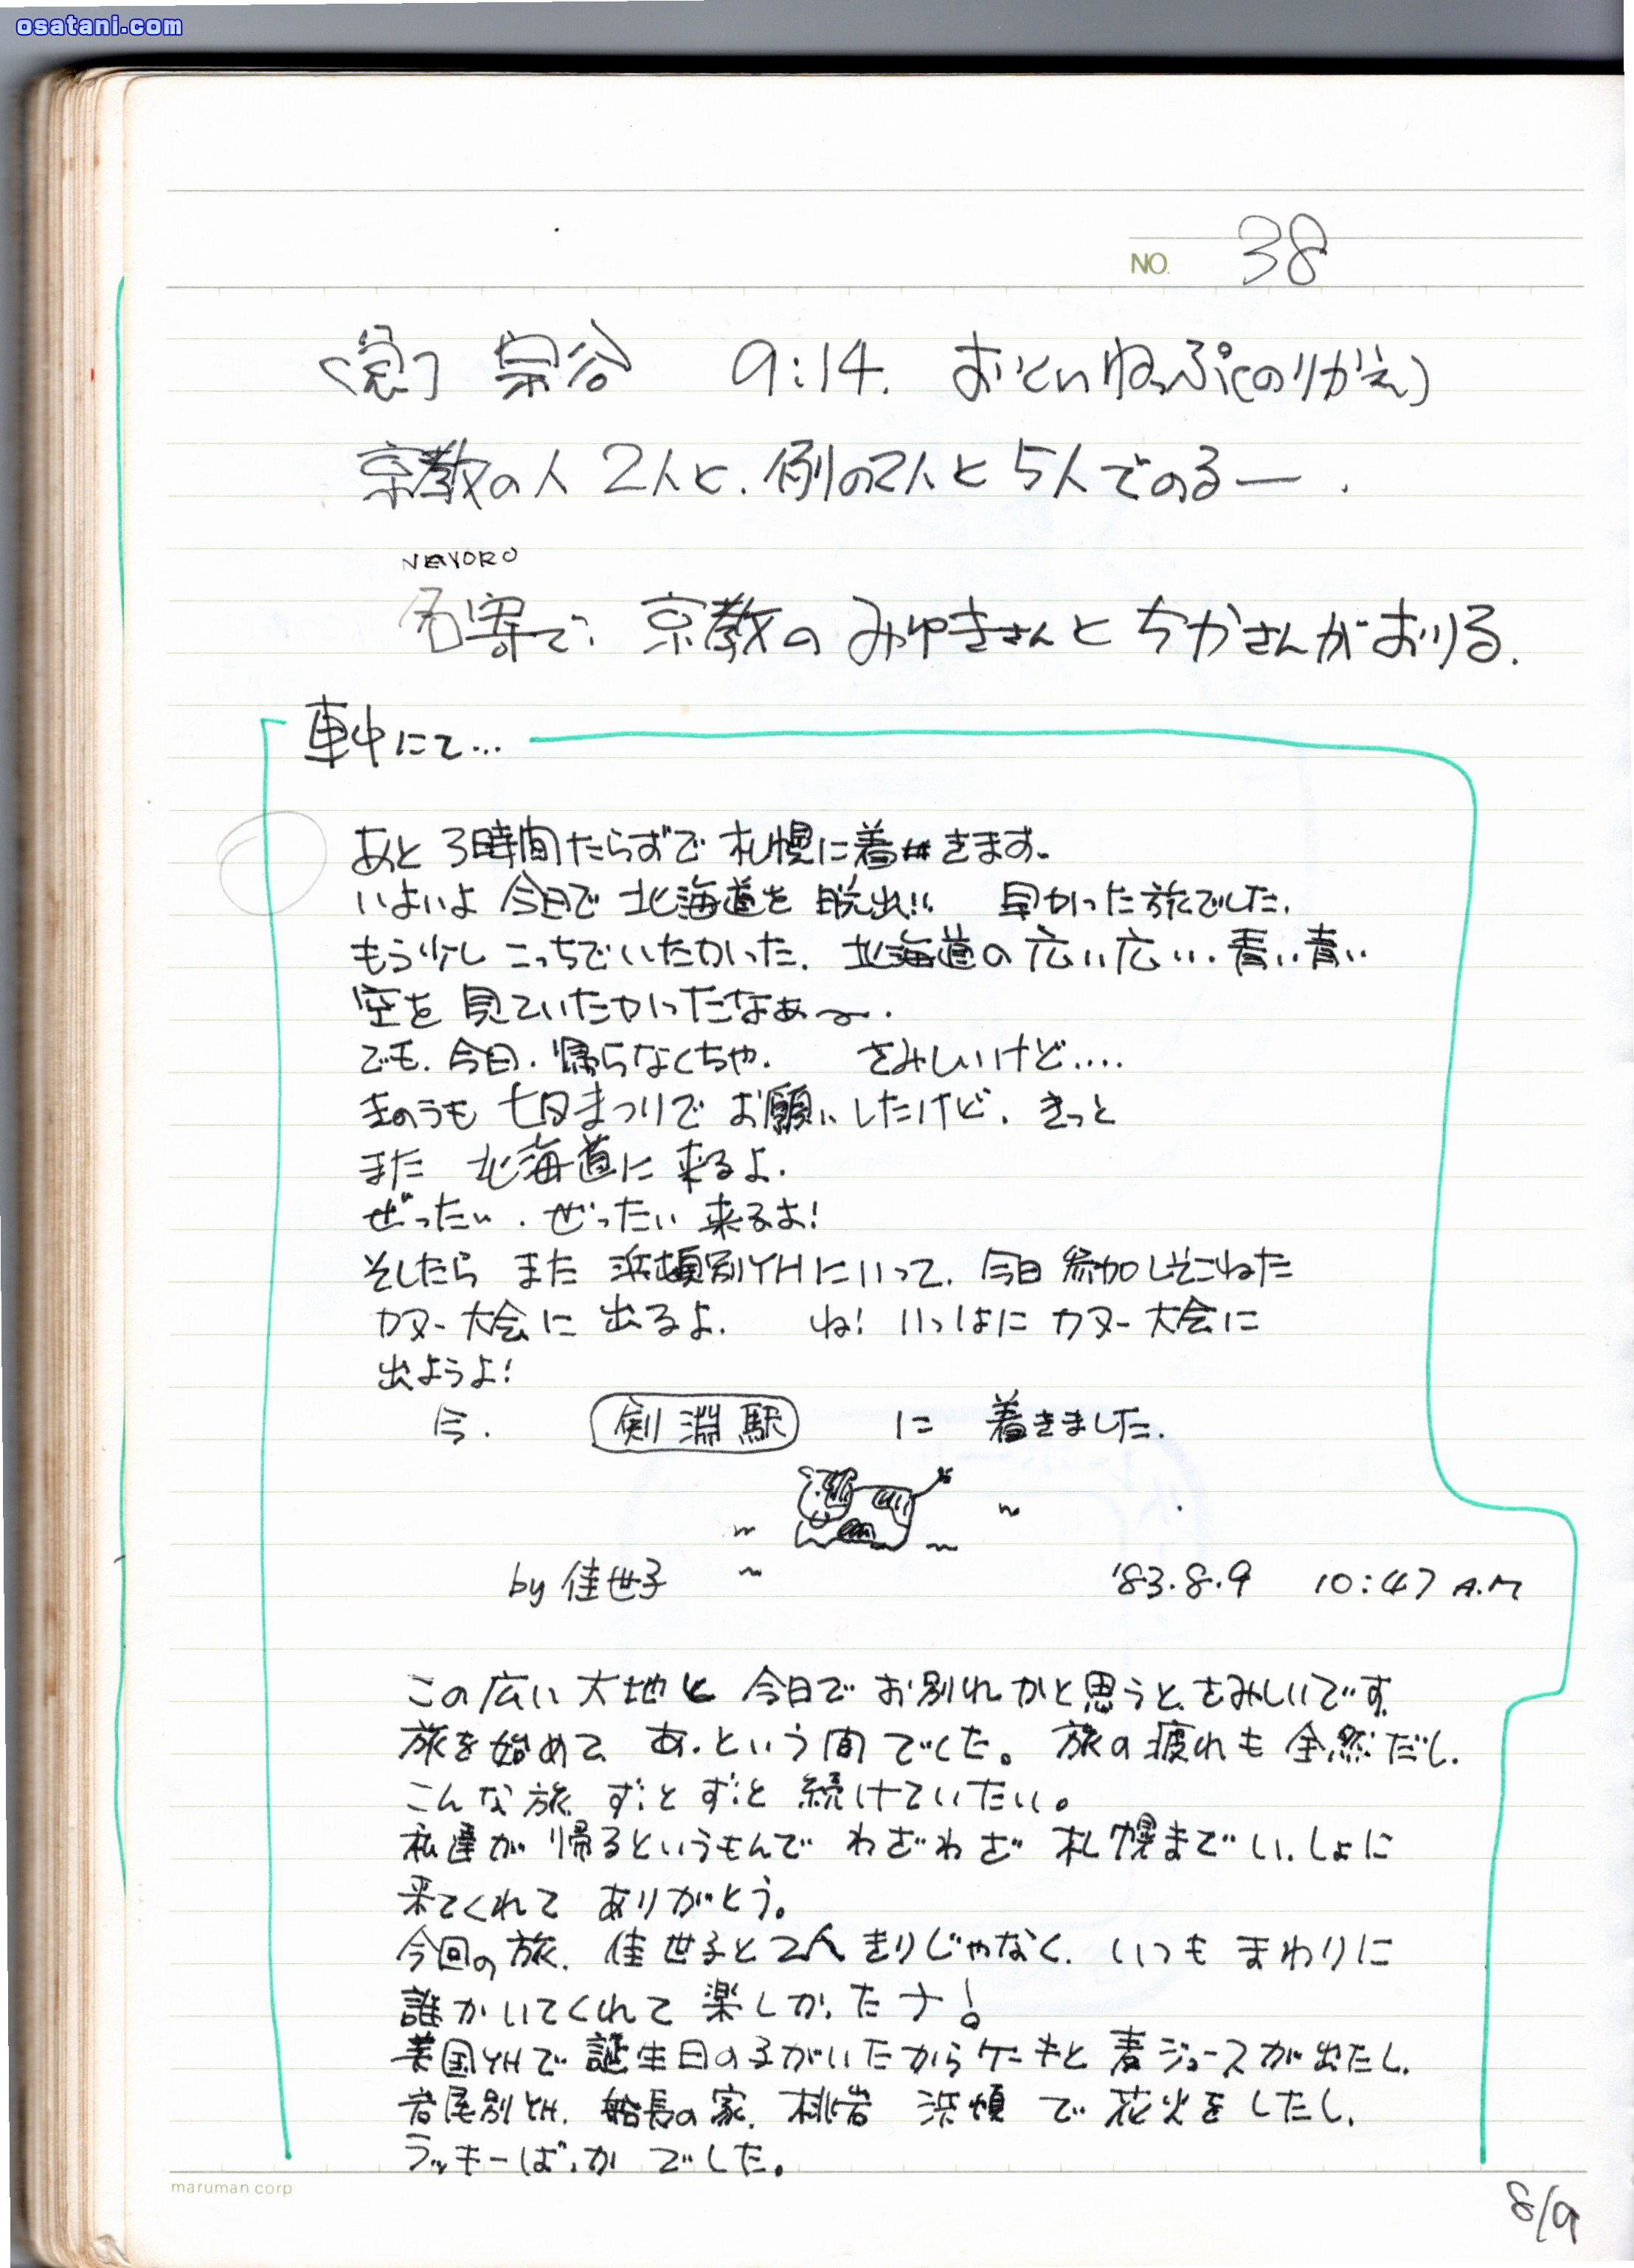 osatani.com
NO. 38
〈急〉 宗谷 9:14. おといねっぷ(のりかえ)
京教の人 2人と、例の2人と 5人でのるー.
NAYORO
名寄で、京教の みゆきさんと ちかさんがおりる.
車中にて…
あと 3時間たらずで 札幌に着きます。
いよいよ 今日で 北海道を 脱出!! 早かった旅でした.
もう少し こっちでいたかった. 北海道の 広い広い、青い青い
空を 見ていたかったなぁ〜.
でも. 今日. 帰らなくちゃ. さみしいけど....
きのうも 七夕まつりで お願いしたけど. きっと
また 北海道に 来るよ.
ぜったい. ぜったい 来るよ!
そしたら また 浜頓別YHにいって. 今日 参加しそこねた
カヌー大会に 出るよ. ね! いっしょに カヌー大会に
出ようよ!
今. 剣淵駅 に 着きました.
by 佳世子 '83.8.9 10:47 A.M
この広い 大地と 今日で お別れかと思うと、さみしいです.
旅を始めて あっという間でした。 旅の疲れも 全然だし.
こんな旅 ずっと ずっと 続けていたい。
私達が 帰るというもんで わざわざ 札幌まで いっしょに
来てくれて ありがとう。
今回の旅. 佳世子と2人きりじゃなく. いつも まわりに
誰かいてくれて 楽しかったナ!
美国YHで 誕生日の子がいたからケーキと 麦ジュースが出たし.
岩尾別YH. 船長の家. 桃岩 浜頓 で 花火をしたし.
ラッキーばっか でした。
maruman corp
8/9